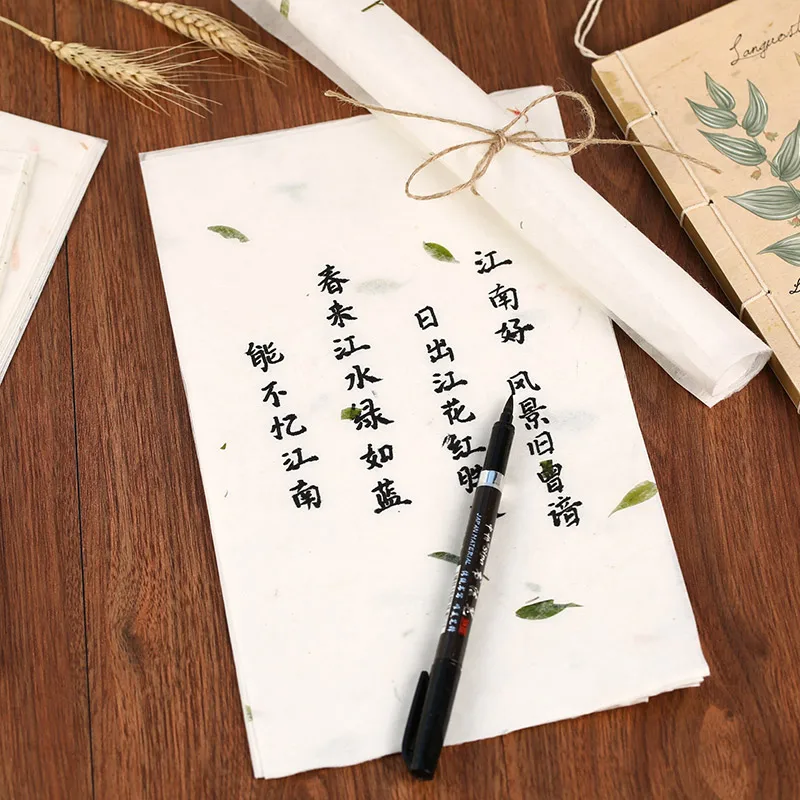 江南好 风景旧曾谙
日出江花红胜
春来江水绿如蓝
能不忆江南
JAPAN MATERIAL
Languost